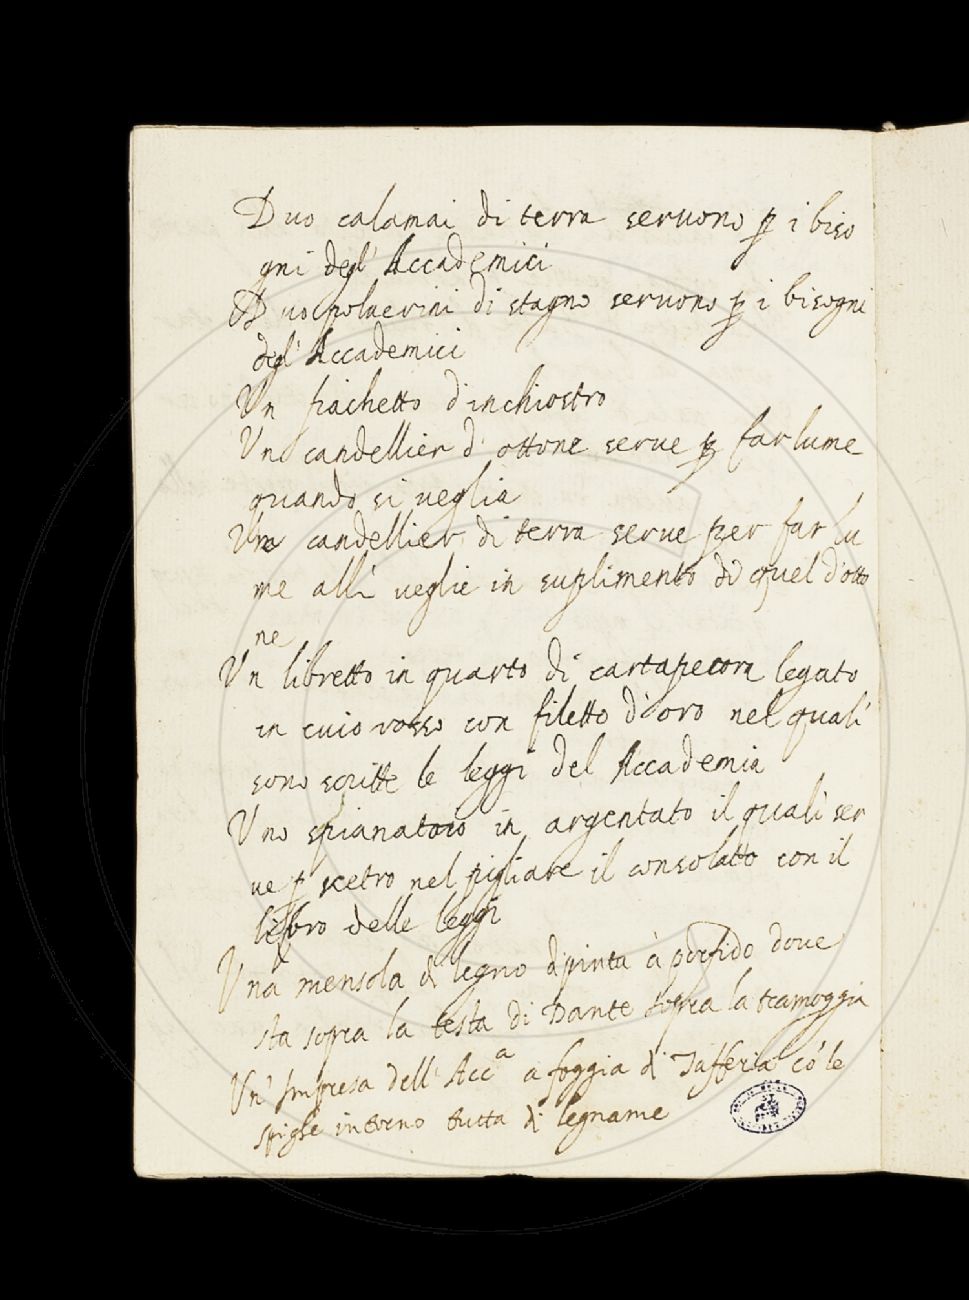 Duo calamai di terra seruono ꝑ i biso
gni degl' Accademici
Duo poluerini di stagno seruono ꝑ i bisogni
degl' Accademici
Un fiachetto d'inchiostro
Un candellier d' ottone serue ꝑ far lume
quando si ueglia
Un candellier di terra serue per far lu
me alli ueglie in suplimento di quel d'otto
ne
Un libretto in quarto di cartapecora legato
in cuio rosso con filetto d'oro nel quali
sono scritte le leggi del Accademia
Uno spianatoio in argentato il quali ser
ue ꝑ scetro nel pigliare il consolatto con il
lebro delle leggi
Una mensola di legno dipinta à porfido doue
sta sopra la testa di Dante sopra la scamoggia
Un' Impresa dell' Acc.a a foggia di Tafferia có le
spighe intorno tutta di legname